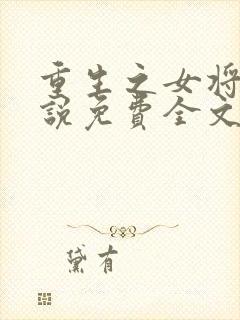 重生之女将
說免費全文
黛有